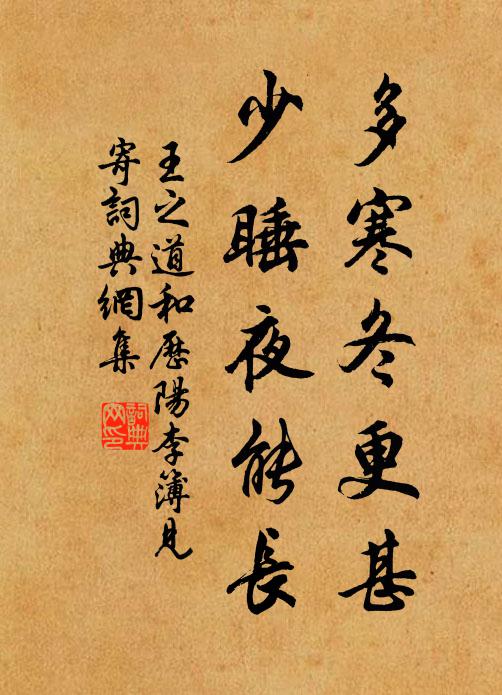 多寒冬更甚
少睡夜能長
王之道和歷陽李簿見
寄詞典網集
詞典
网印